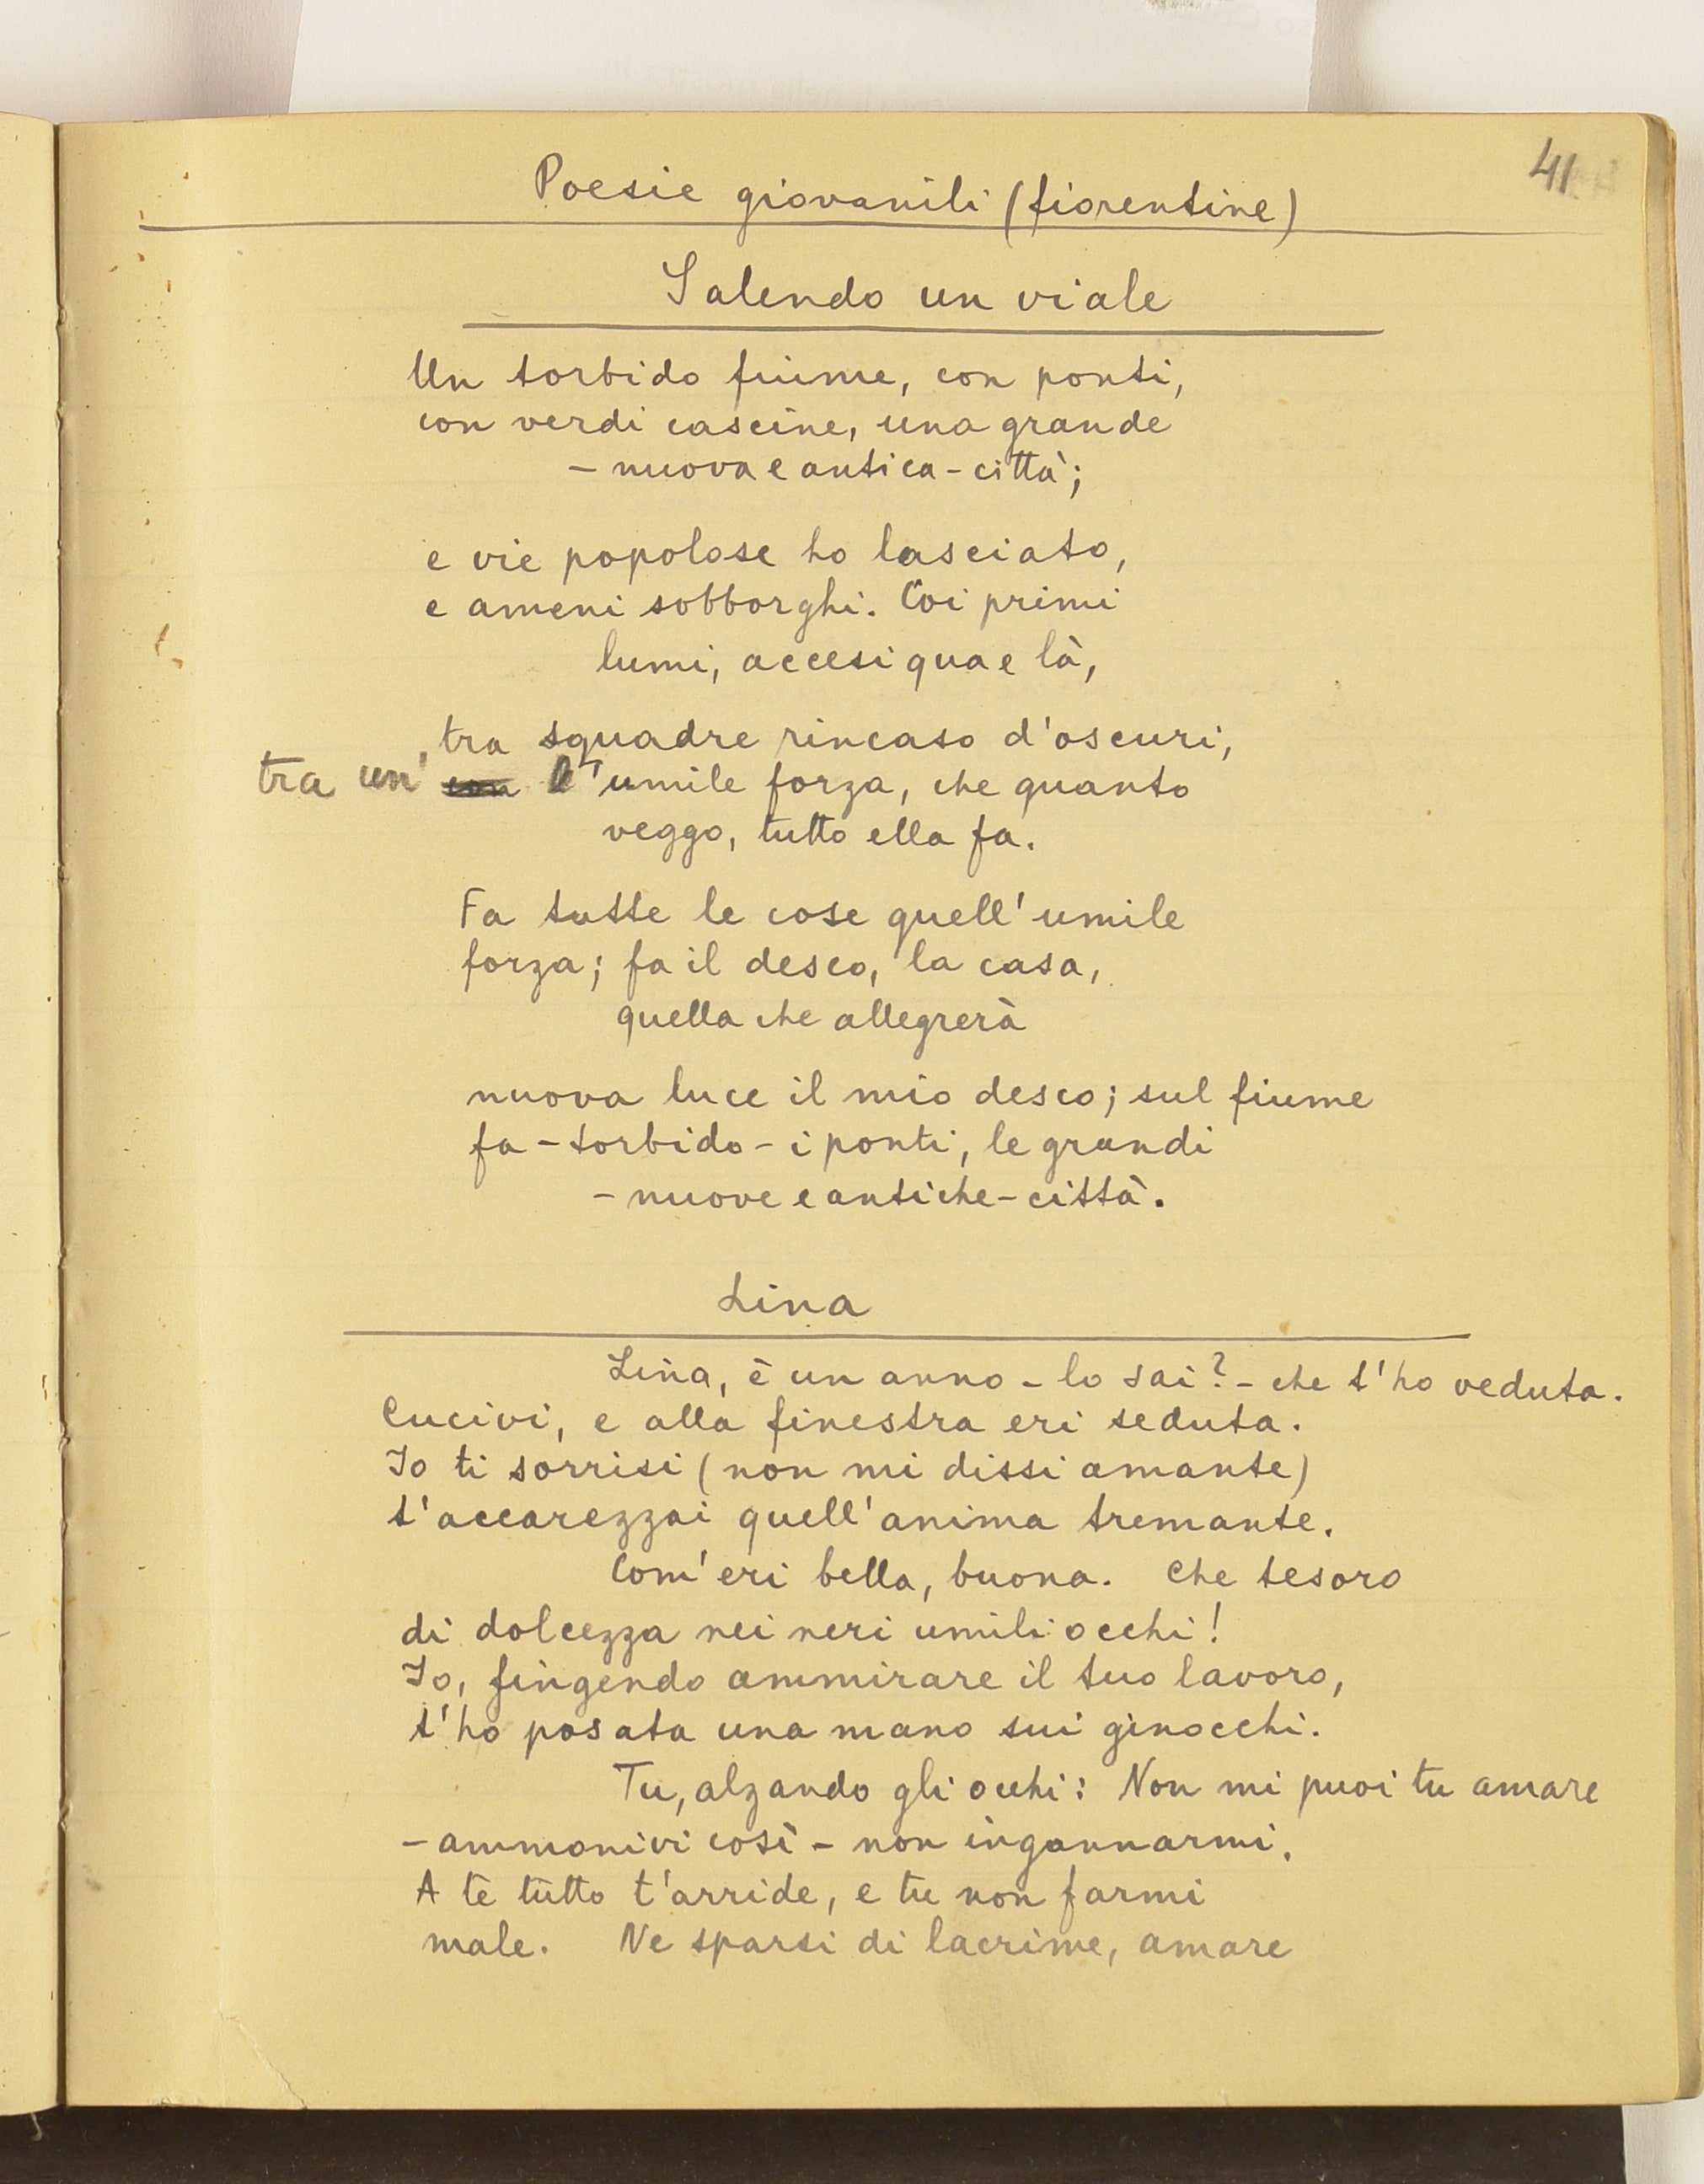 41
Poesie giovanili (fiorentine)
Salendo un viale
Un torbido fiume, con ponti,
con verdi cascine, una grande
- nuova e antica - città;
e vie popolose ho lasciato,
e ameni sobborghi. Coi primi
lumi, accesi qua e là,
tra squadre rincaso d'oscuri,
tra un' con l'umile forza, che quanto
veggo, tutto ella fa.
Fa tutte le cose quell'umile
forza; fa il desco, la casa,
quella che allegrerà
nuova luce il mio desco; sul fiume
fa - torbido - i ponti, le grandi
- nuove e antiche - città.
Lina
Lina, è un anno - lo sai? - che t'ho veduta.
Cucivi, e alla finestra eri seduta.
Io ti sorrisi (non mi dissi amante)
t'accarezzai quell'anima tremante.
Com'eri bella, buona. Che tesoro
di dolcezza nei neri umili occhi!
Io, fingendo ammirare il tuo lavoro,
t'ho posata una mano sui ginocchi.
Tu, alzando gli occhi: Non mi puoi tu amare
- ammonivi così - non ingannarmi.
A te tutto t'arride, e tu non farmi
male. Ne sparsi di lacrime, amare